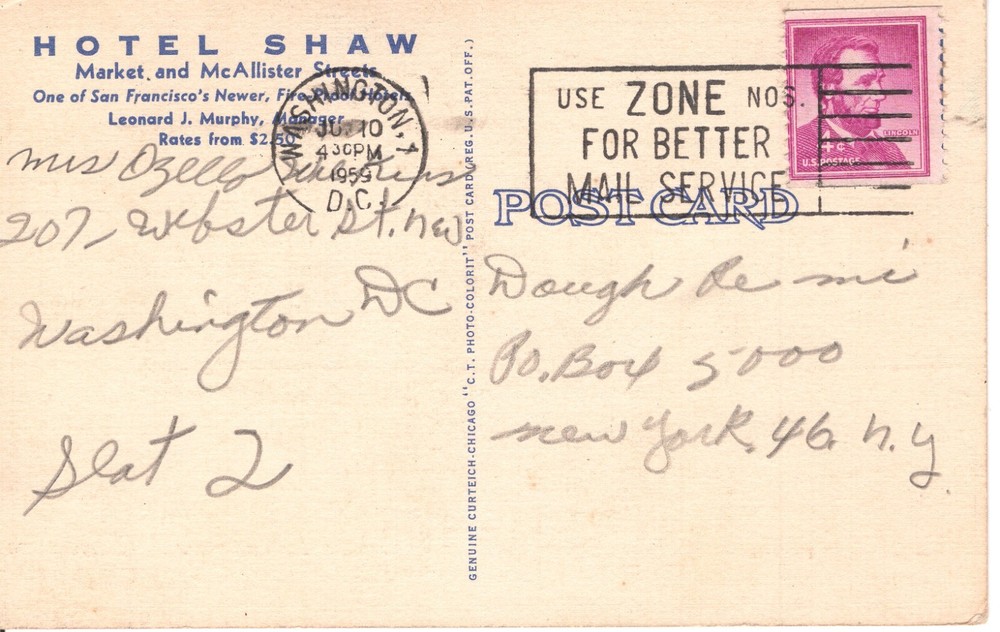 HOTEL SHAW
Market and McAllister Streets
One of San Francisco's Newer, Fire-Proof Hotels
Leonard J. Murphy, Manager
Rates from $2.50
WASHINGTON, 1
10
4 30 PM
1959
D.C.
USE ZONE NOS.
FOR BETTER
MAIL SERVICE
LINCOLN
4¢
U.S. POSTAGE
POST CARD
GENUINE CURTEICH-CHICAGO "C.T. PHOTO-COLORIT" POST CARD (REG. U.S. PAT. OFF.)
Mrs Ozella
207, Webster St. NW
Washington DC
Slat 2
Dough Re mi
PO. Box 5000
new York, 46 N.Y